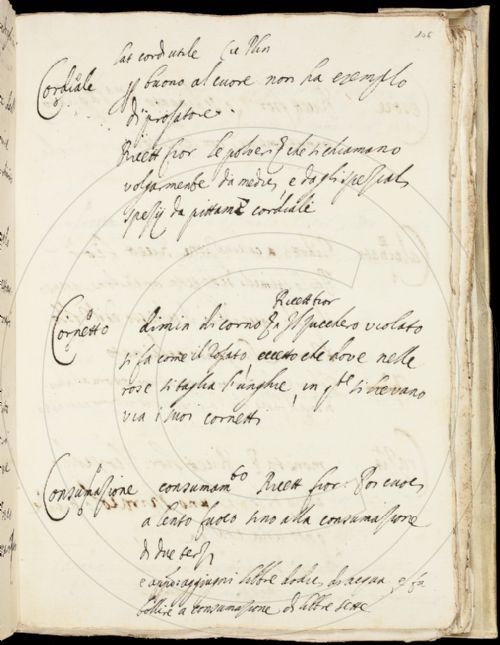 106
lat cord utile Cic Plin
Cordiale
buono al cuore non ha exemplo
di prosatore.
Ricett fior le polveri che si chiamano
volgarmente da medici, e dagli spetiali
spetij da pittima cordiale
Ricett fior
Cornetto dimin di corno Zucchero violato
si fa come il rosato eccetto che dove nelle
rose si taglia l'unghie, in qte si levano
via i suoi cornetti
Consumazione consumamto Ricett fior: Poi cuoci
a lento fuoco sino alla consumazione
di due terzi
e aggiugni libbre dodici di acqua e fa
bollire a consumazione di libbre sette